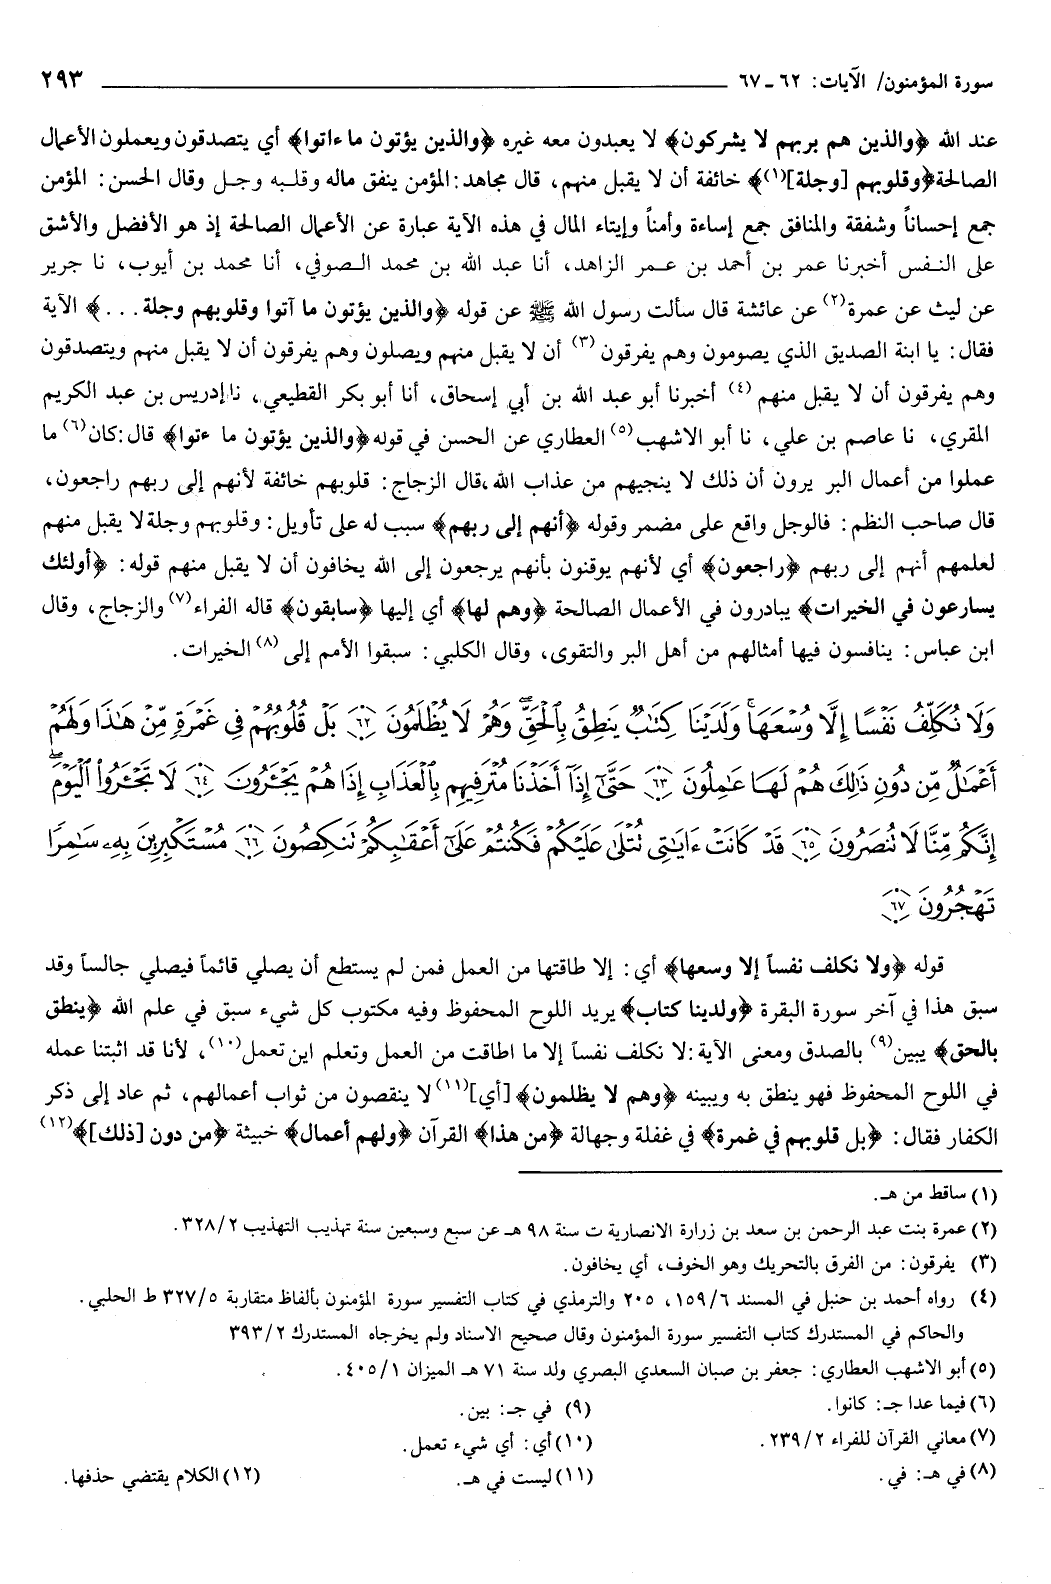 سورة المؤمنون/ الآيات: ٦٢ - ٦٧ ٢٩٣
عند الله ﴿والذين هم بربهم لا يشركون﴾ لا يعبدون معه غيره ﴿والذين يؤتون ما ءاتوا﴾ أي يتصدقون ويعملون الأعمال
الصالحة ﴿وقلوبهم [وجلة](١)﴾ خائفة أن لا يقبل منهم، قال مجاهد: المؤمن ينفق ماله وقلبه وجل وقال الحسن: المؤمن
جمع إحساناً وشفقة والمنافق جمع إساءة وأمناً وإيتاء المال في هذه الآية عبارة عن الأعمال الصالحة إذ هو الأفضل والأشق
على النفس أخبرنا عمر بن أحمد بن عمر الزاهد، أنا عبد الله بن محمد الصوفي، أنا محمد بن أيوب، نا جرير
عن ليث عن عمرة(٢) عن عائشة قال سألت رسول الله ﷺ عن قوله ﴿والذين يؤتون ما آتوا وقلوبهم وجلة ...﴾ الآية
فقال: يا ابنة الصديق الذي يصومون وهم يفرقون(٣) أن لا يقبل منهم ويصلون وهم يفرقون أن لا يقبل منهم ويتصدقون
وهم يفرقون أن لا يقبل منهم(٤) أخبرنا أبو عبد الله بن أبي إسحاق، أنا أبو بكر القطيعي، نا إدريس بن عبد الكريم
المقري، نا عاصم بن علي، نا أبو الاشهب(٥) العطاري عن الحسن في قوله ﴿والذين يؤتون ما ءتوا﴾ قال: كان(٦) ما
عملوا من أعمال البر يرون أن ذلك لا ينجيهم من عذاب الله، قال الزجاج: قلوبهم خائفة لأنهم إلى ربهم راجعون،
قال صاحب النظم: فالوجل واقع على مضمر وقوله ﴿أنهم إلى ربهم﴾ سبب له على تأويل: وقلوبهم وجلة لا يقبل منهم
لعلمهم أنهم إلى ربهم ﴿راجعون﴾ أي لأنهم يوقنون بأنهم يرجعون إلى الله يخافون أن لا يقبل منهم قوله: ﴿أولئك
يسارعون في الخيرات﴾ يبادرون في الأعمال الصالحة ﴿وهم لها﴾ أي إليها ﴿سابقون﴾ قاله الفراء(٧) والزجاج، وقال
ابن عباس: ينافسون فيها أمثالهم من أهل البر والتقوى، وقال الكلبي: سبقوا الأمم إلى(٨) الخيرات.
وَلَا نُكَلِّفُ نَفْسًا إِلَّا وُسْعَهَا ۖ وَلَدَيْنَا كِتَٰبٌ يَنطِقُ بِٱلْحَقِّ ۚ وَهُمْ لَا يُظْلَمُونَ ﴿٦٢﴾ بَلْ قُلُوبُهُمْ فِى غَمْرَةٍ مِّنْ هَٰذَا وَلَهُمْ
أَعْمَٰلٌ مِّن دُونِ ذَٰلِكَ هُمْ لَهَا عَٰمِلُونَ ﴿٦٣﴾ حَتَّىٰٓ إِذَآ أَخَذْنَا مُتْرَفِيهِم بِٱلْعَذَابِ إِذَا هُمْ يَجْـَٔرُونَ ﴿٦٤﴾ لَا تَجْـَٔرُوا۟ ٱلْيَوْمَ ۖ
إِنَّكُم مِّنَّا لَا تُنصَرُونَ ﴿٦٥﴾ قَدْ كَانَتْ ءَايَٰتِى تُتْلَىٰ عَلَيْكُمْ فَكُنتُمْ عَلَىٰٓ أَعْقَٰبِكُمْ تَنكِصُونَ ﴿٦٦﴾ مُسْتَكْبِرِينَ بِهِۦ سَٰمِرًا
تَهْجُرُونَ ﴿٦٧﴾
قوله ﴿ولا نكلف نفساً إلا وسعها﴾ أي: إلا طاقتها من العمل فمن لم يستطع أن يصلي قائماً فيصلي جالساً وقد
سبق هذا في آخر سورة البقرة ﴿ولدينا كتاب﴾ يريد اللوح المحفوظ وفيه مكتوب كل شيء سبق في علم الله ﴿ينطق
بالحق﴾ يبين(٩) بالصدق ومعنى الآية: لا نكلف نفساً إلا ما اطاقت من العمل وتعلم اين تعمل(١٠)، لأنا قد اثبتنا عمله
في اللوح المحفوظ فهو ينطق به ويبينه ﴿وهم لا يظلمون﴾ [أي](١١) لا ينقصون من ثواب أعمالهم، ثم عاد إلى ذكر
الكفار فقال: ﴿بل قلوبهم في غمرة﴾ في غفلة وجهالة ﴿من هذا﴾ القرآن ﴿ولهم أعمال﴾ خبيثة ﴿من دون [ذلك]﴾(١٢)
(١) ساقط من هـ.
(٢) عمرة بنت عبد الرحمن بن سعد بن زرارة الانصارية ت سنة ٩٨ هـ عن سبع وسبعين سنة تهذيب التهذيب ٢/ ٣٢٨.
(٣) يفرقون: من الفرق بالتحريك وهو الخوف، أي يخافون.
(٤) رواه أحمد بن حنبل في المسند ٦/ ١٥٩، ٢٠٥ والترمذي في كتاب التفسير سورة المؤمنون بألفاظ متقاربة ٥/ ٣٢٧ ط الحلبي.
والحاكم في المستدرك كتاب التفسير سورة المؤمنون وقال صحيح الاسناد ولم يخرجاه المستدرك ٢/ ٣٩٣
(٥) أبو الاشهب العطاري: جعفر بن صبان السعدي البصري ولد سنة ٧١ هـ الميزان ١/ ٤٠٥.
(٦) فيما عدا جـ: كانوا.
(٧) معاني القرآن للفراء ٢/ ٢٣٩.
(٨) في هـ: في.
(٩) في جـ: بين.
(١٠) أي: أي شيء تعمل.
(١١) ليست في هـ.
(١٢) الكلام يقتضي حذفها.